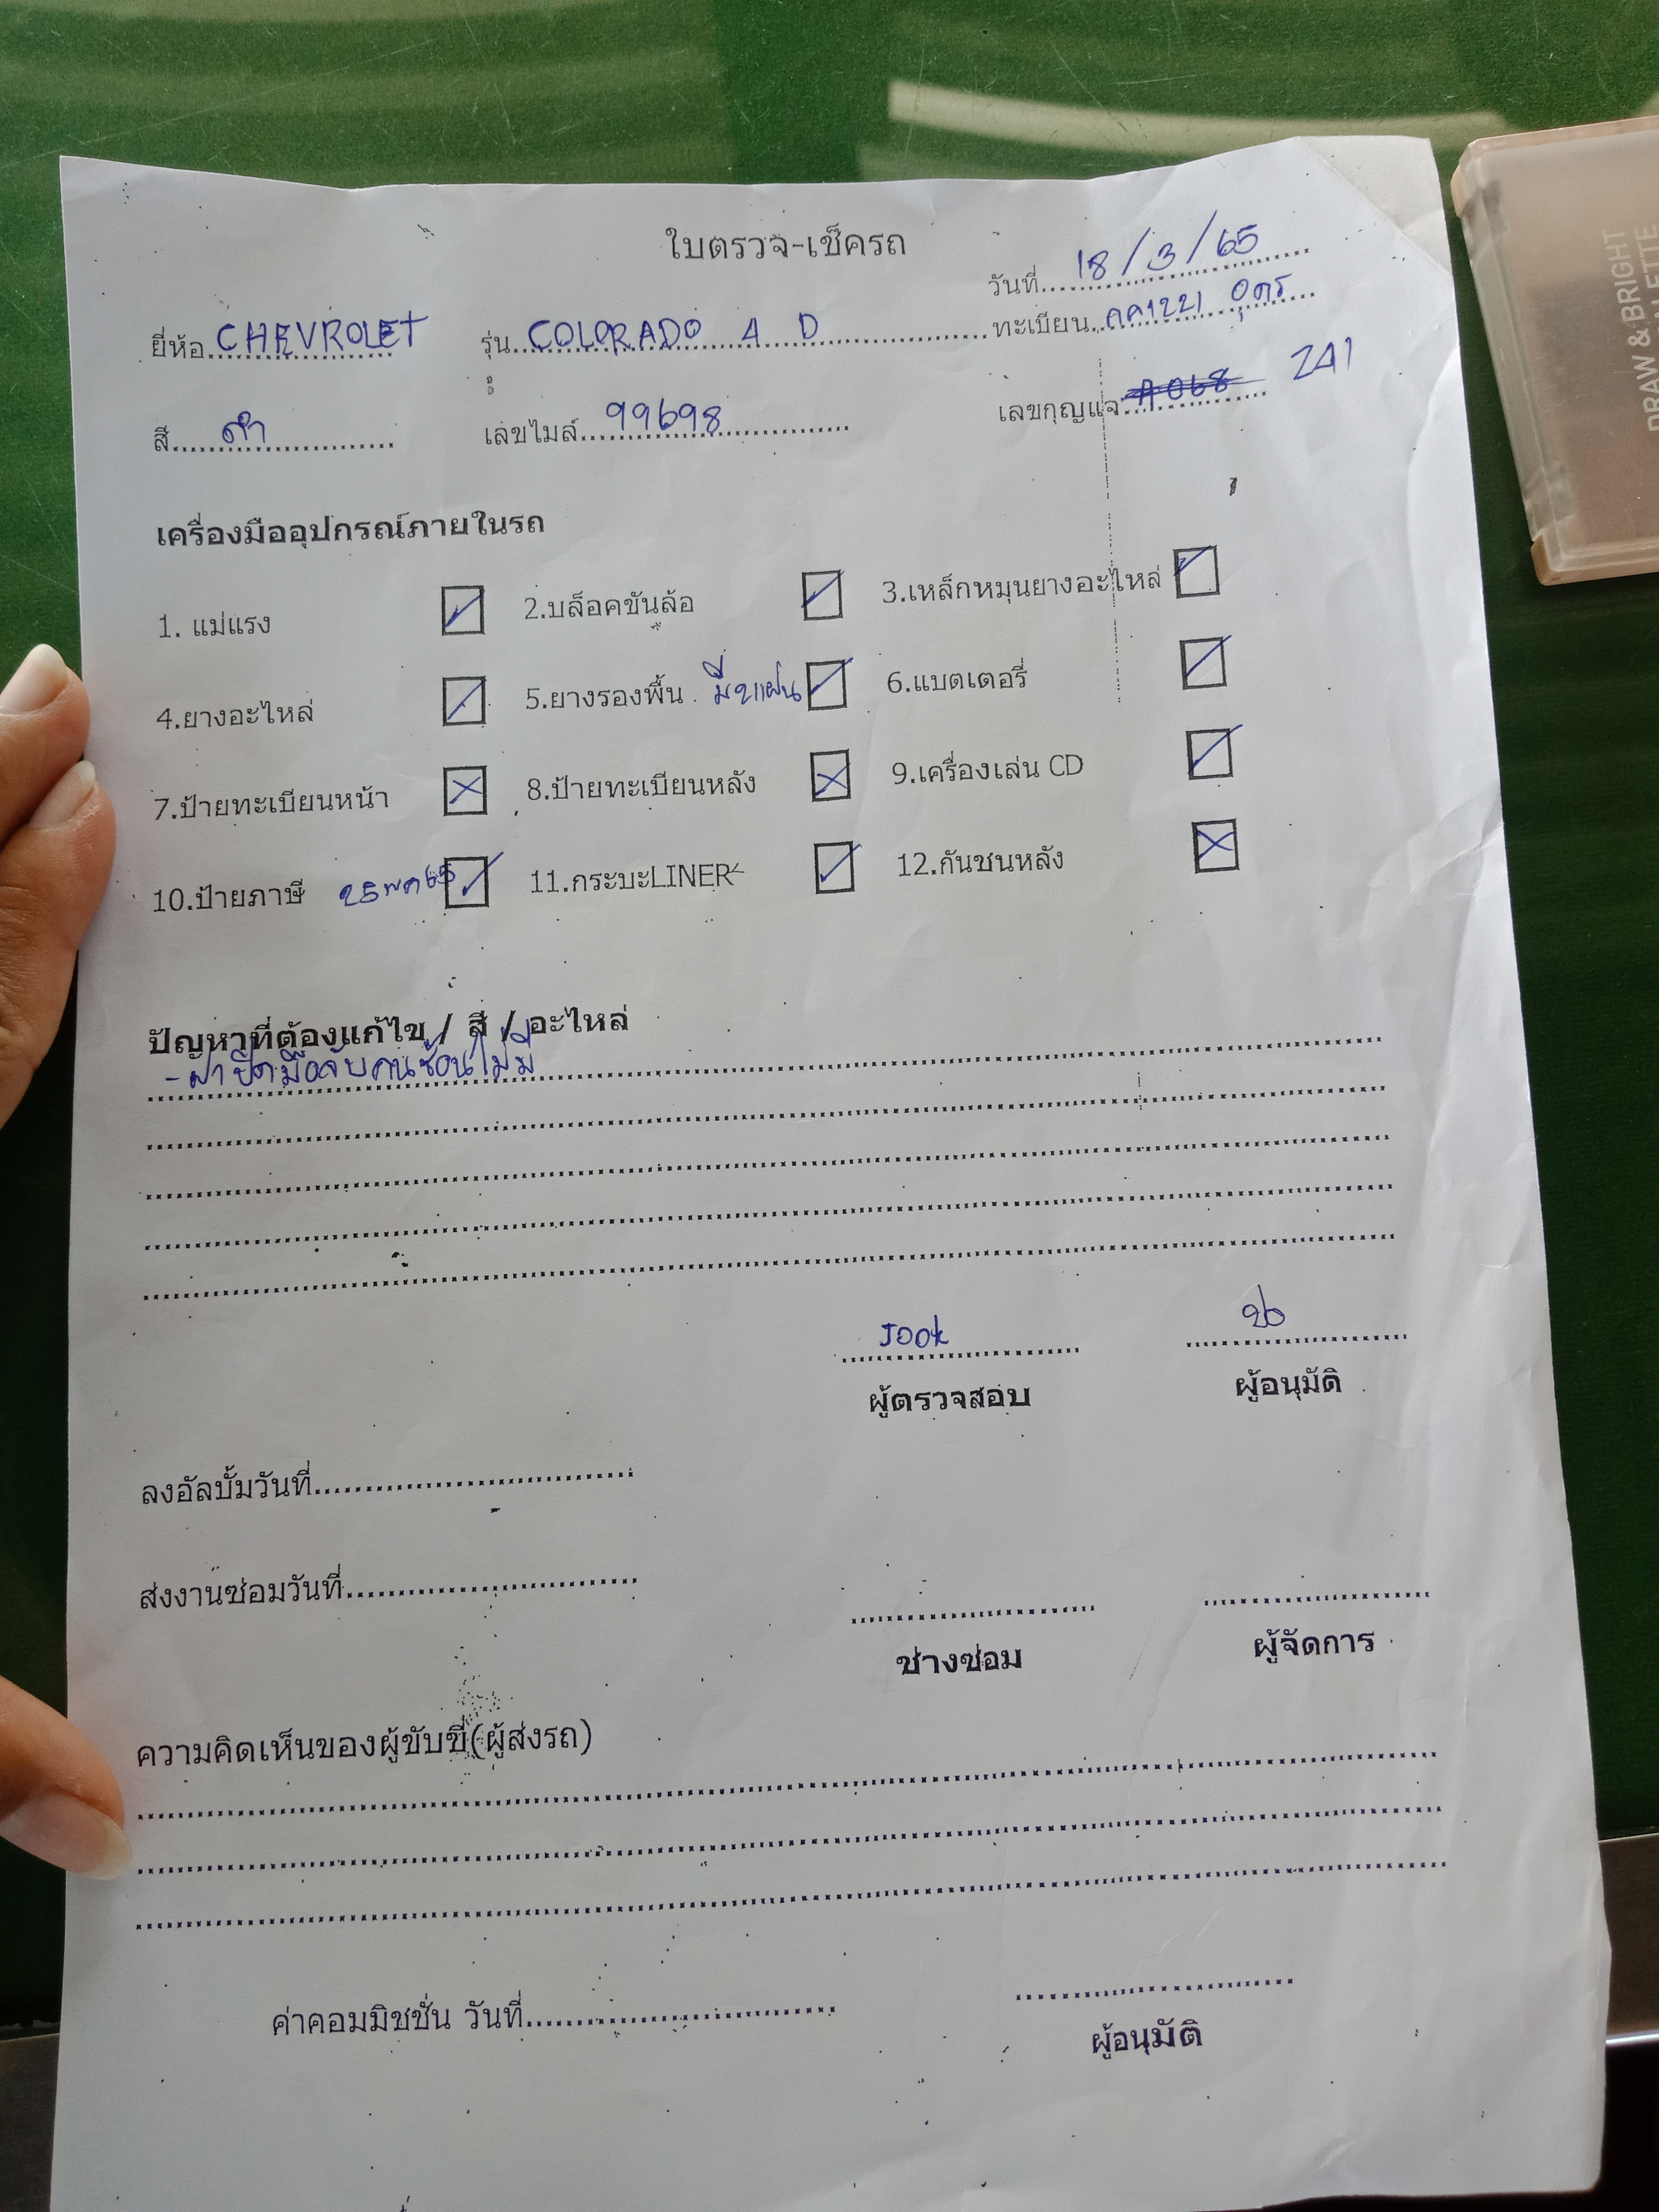 ใบตรวจ-เช็ครถ
วันที่ 18/3/65
ยี่ห้อ CHEVROLET รุ่น COLORADO 4 D ทะเบียน กค1221 อุดร
สี ดำ เลขไมล์ 99698 เลขกุญแจ A068 241
เครื่องมืออุปกรณ์ภายในรถ
1. แม่แรง 2.บล็อคขันล้อ 3.เหล็กหมุนยางอะไหล่
4.ยางอะไหล่ 5.ยางรองพื้น 6.แบตเตอรี่
7.ป้ายทะเบียนหน้า 8.ป้ายทะเบียนหลัง 9.เครื่องเล่น CD
10.ป้ายภาษี 25 พค 65 11.กระบะLINER 12.กันชนหลัง
ปัญหาที่ต้องแก้ไข / สี / อะไหล่
- ฝาปิดมือจับคนซ้อนไม่มี
Jook
ผู้ตรวจสอบ ผู้อนุมัติ
ลงอัลบั้มวันที่
ส่งงานซ่อมวันที่
ช่างซ่อม ผู้จัดการ
ความคิดเห็นของผู้ขับขี่(ผู้ส่งรถ)
ค่าคอมมิชชั่น วันที่
ผู้อนุมัติ
DRAW & BRIGHT